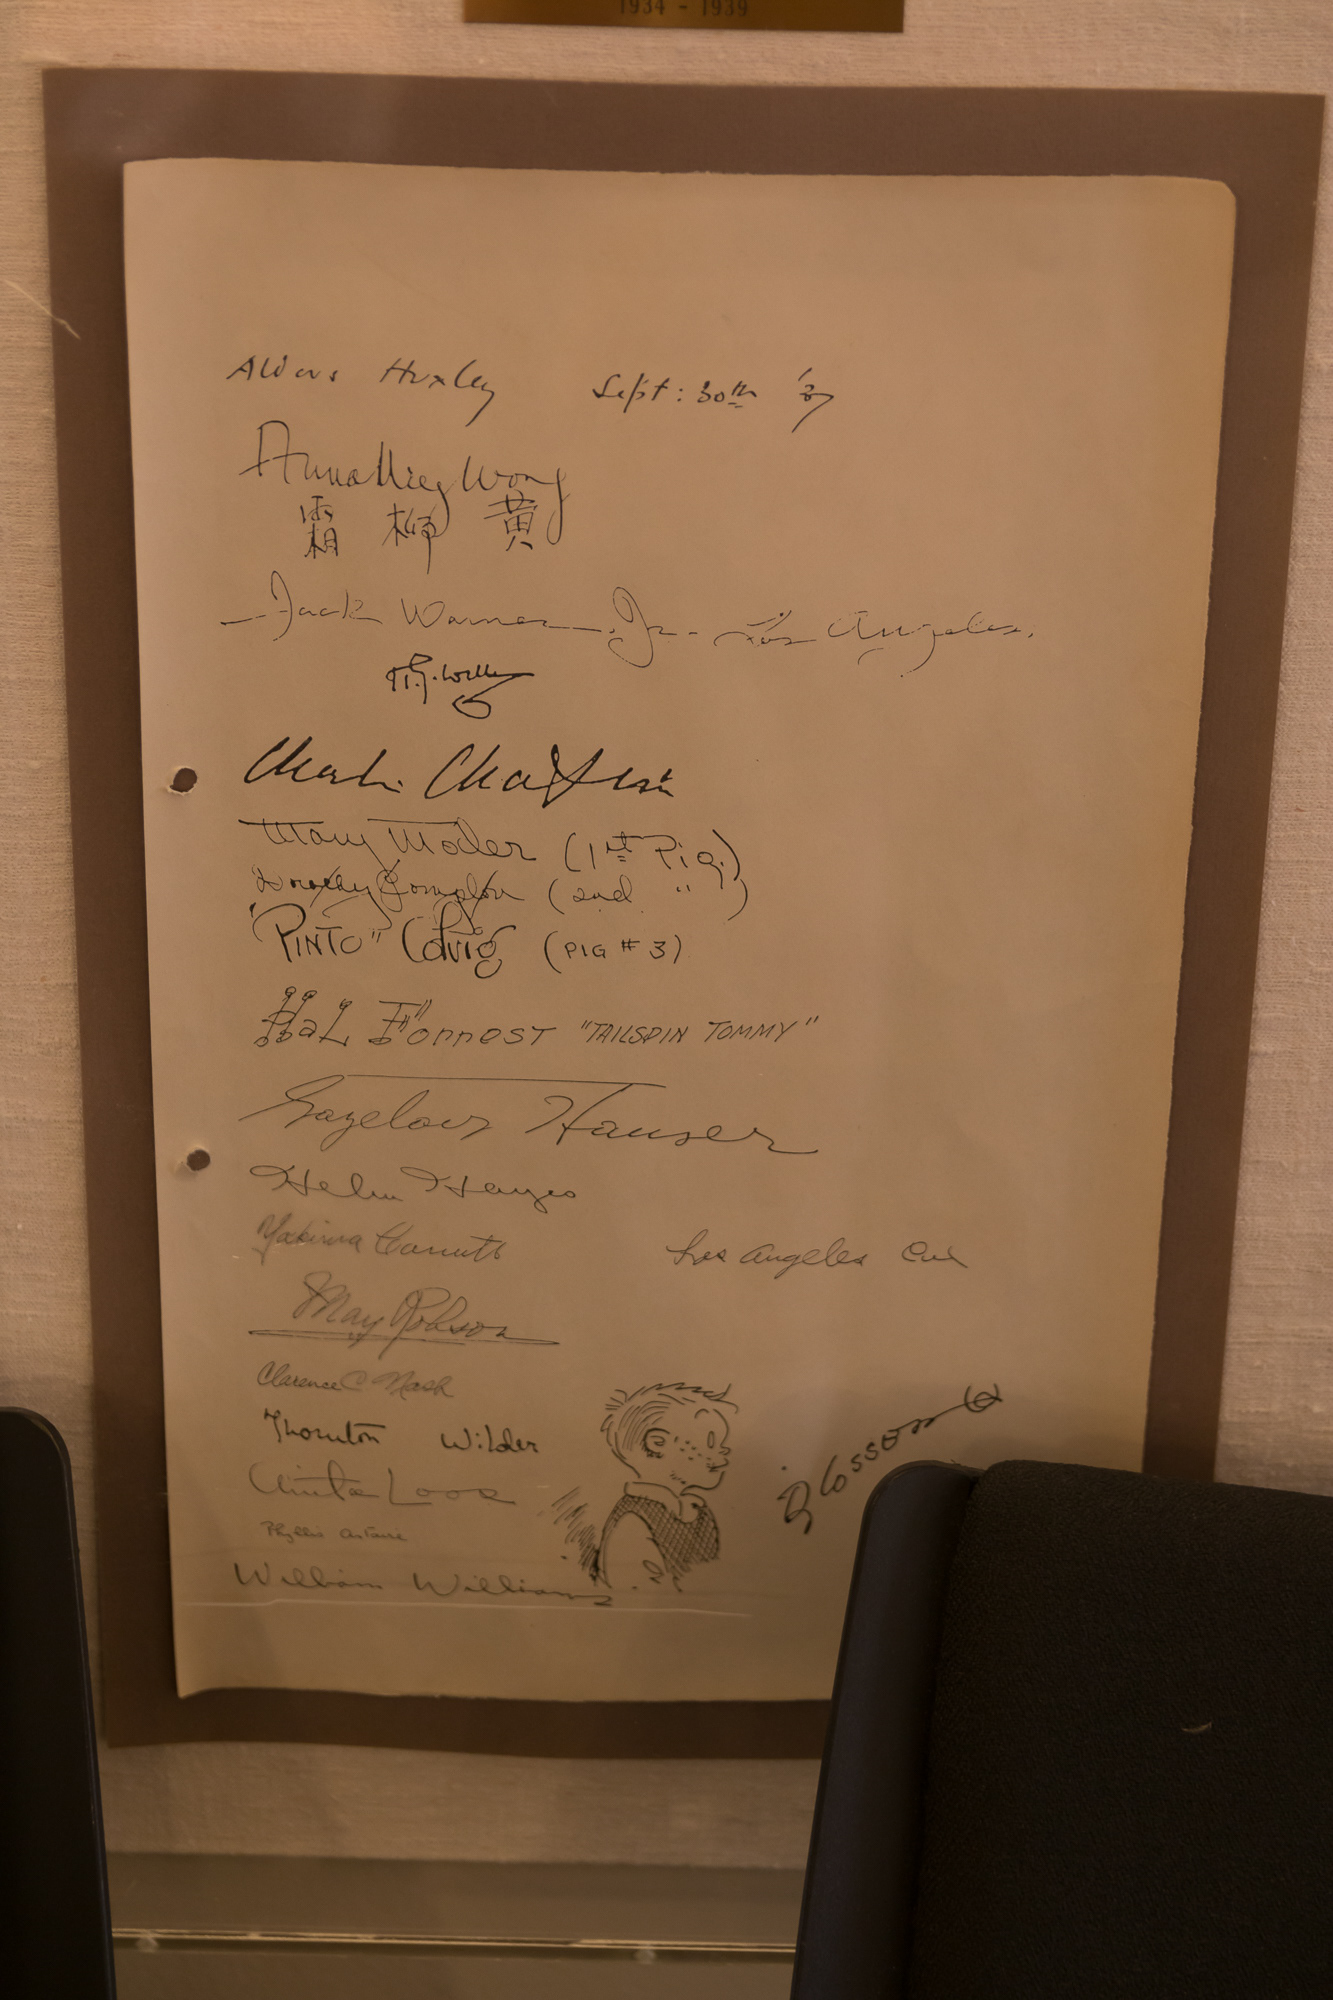 1934 - 1939
Aldous Huxley Sept: 30th '37
Anna May Wong
霜 柳 黄
Jack Warner Jr. - Los Angeles.
Charlie Chaplin
Mary Moder (1st Pig)
Dorothy Compton (2nd " )
"PINTO" Colvig (PIG # 3)
HaL Forrest "TAILSPIN TOMMY"
Gayelord Hauser
Helen Hayes
Los Angeles Cal
May Robson
Clarence C Nash
Thornton Wilder
Anita Loos
Phyllis
William Williams